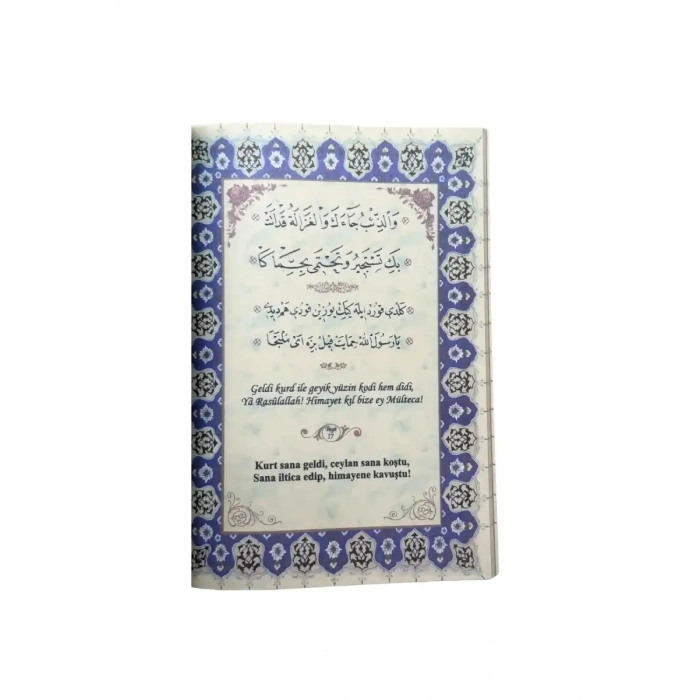 وَالذِّئْبُ جَآءَكَ وَالْغَزَالَةُ قَدْ اَتَتْ
بِكَ تَسْتَجِيرُ وَتَحْتَمِي بِحِمَاكَا
كلدى قورد ايله كيك يوزين قودى هم ديدى
يا رسول الله حمايت قيل بزه اى ملتجا
Geldi kurd ile geyik yüzin kodi hem didi,
Yâ Rasûlallah! Himayet kıl bize ey Mülteca!
17
Kurt sana geldi, ceylan sana koştu,
Sana iltica edip, himayene kavuştu!